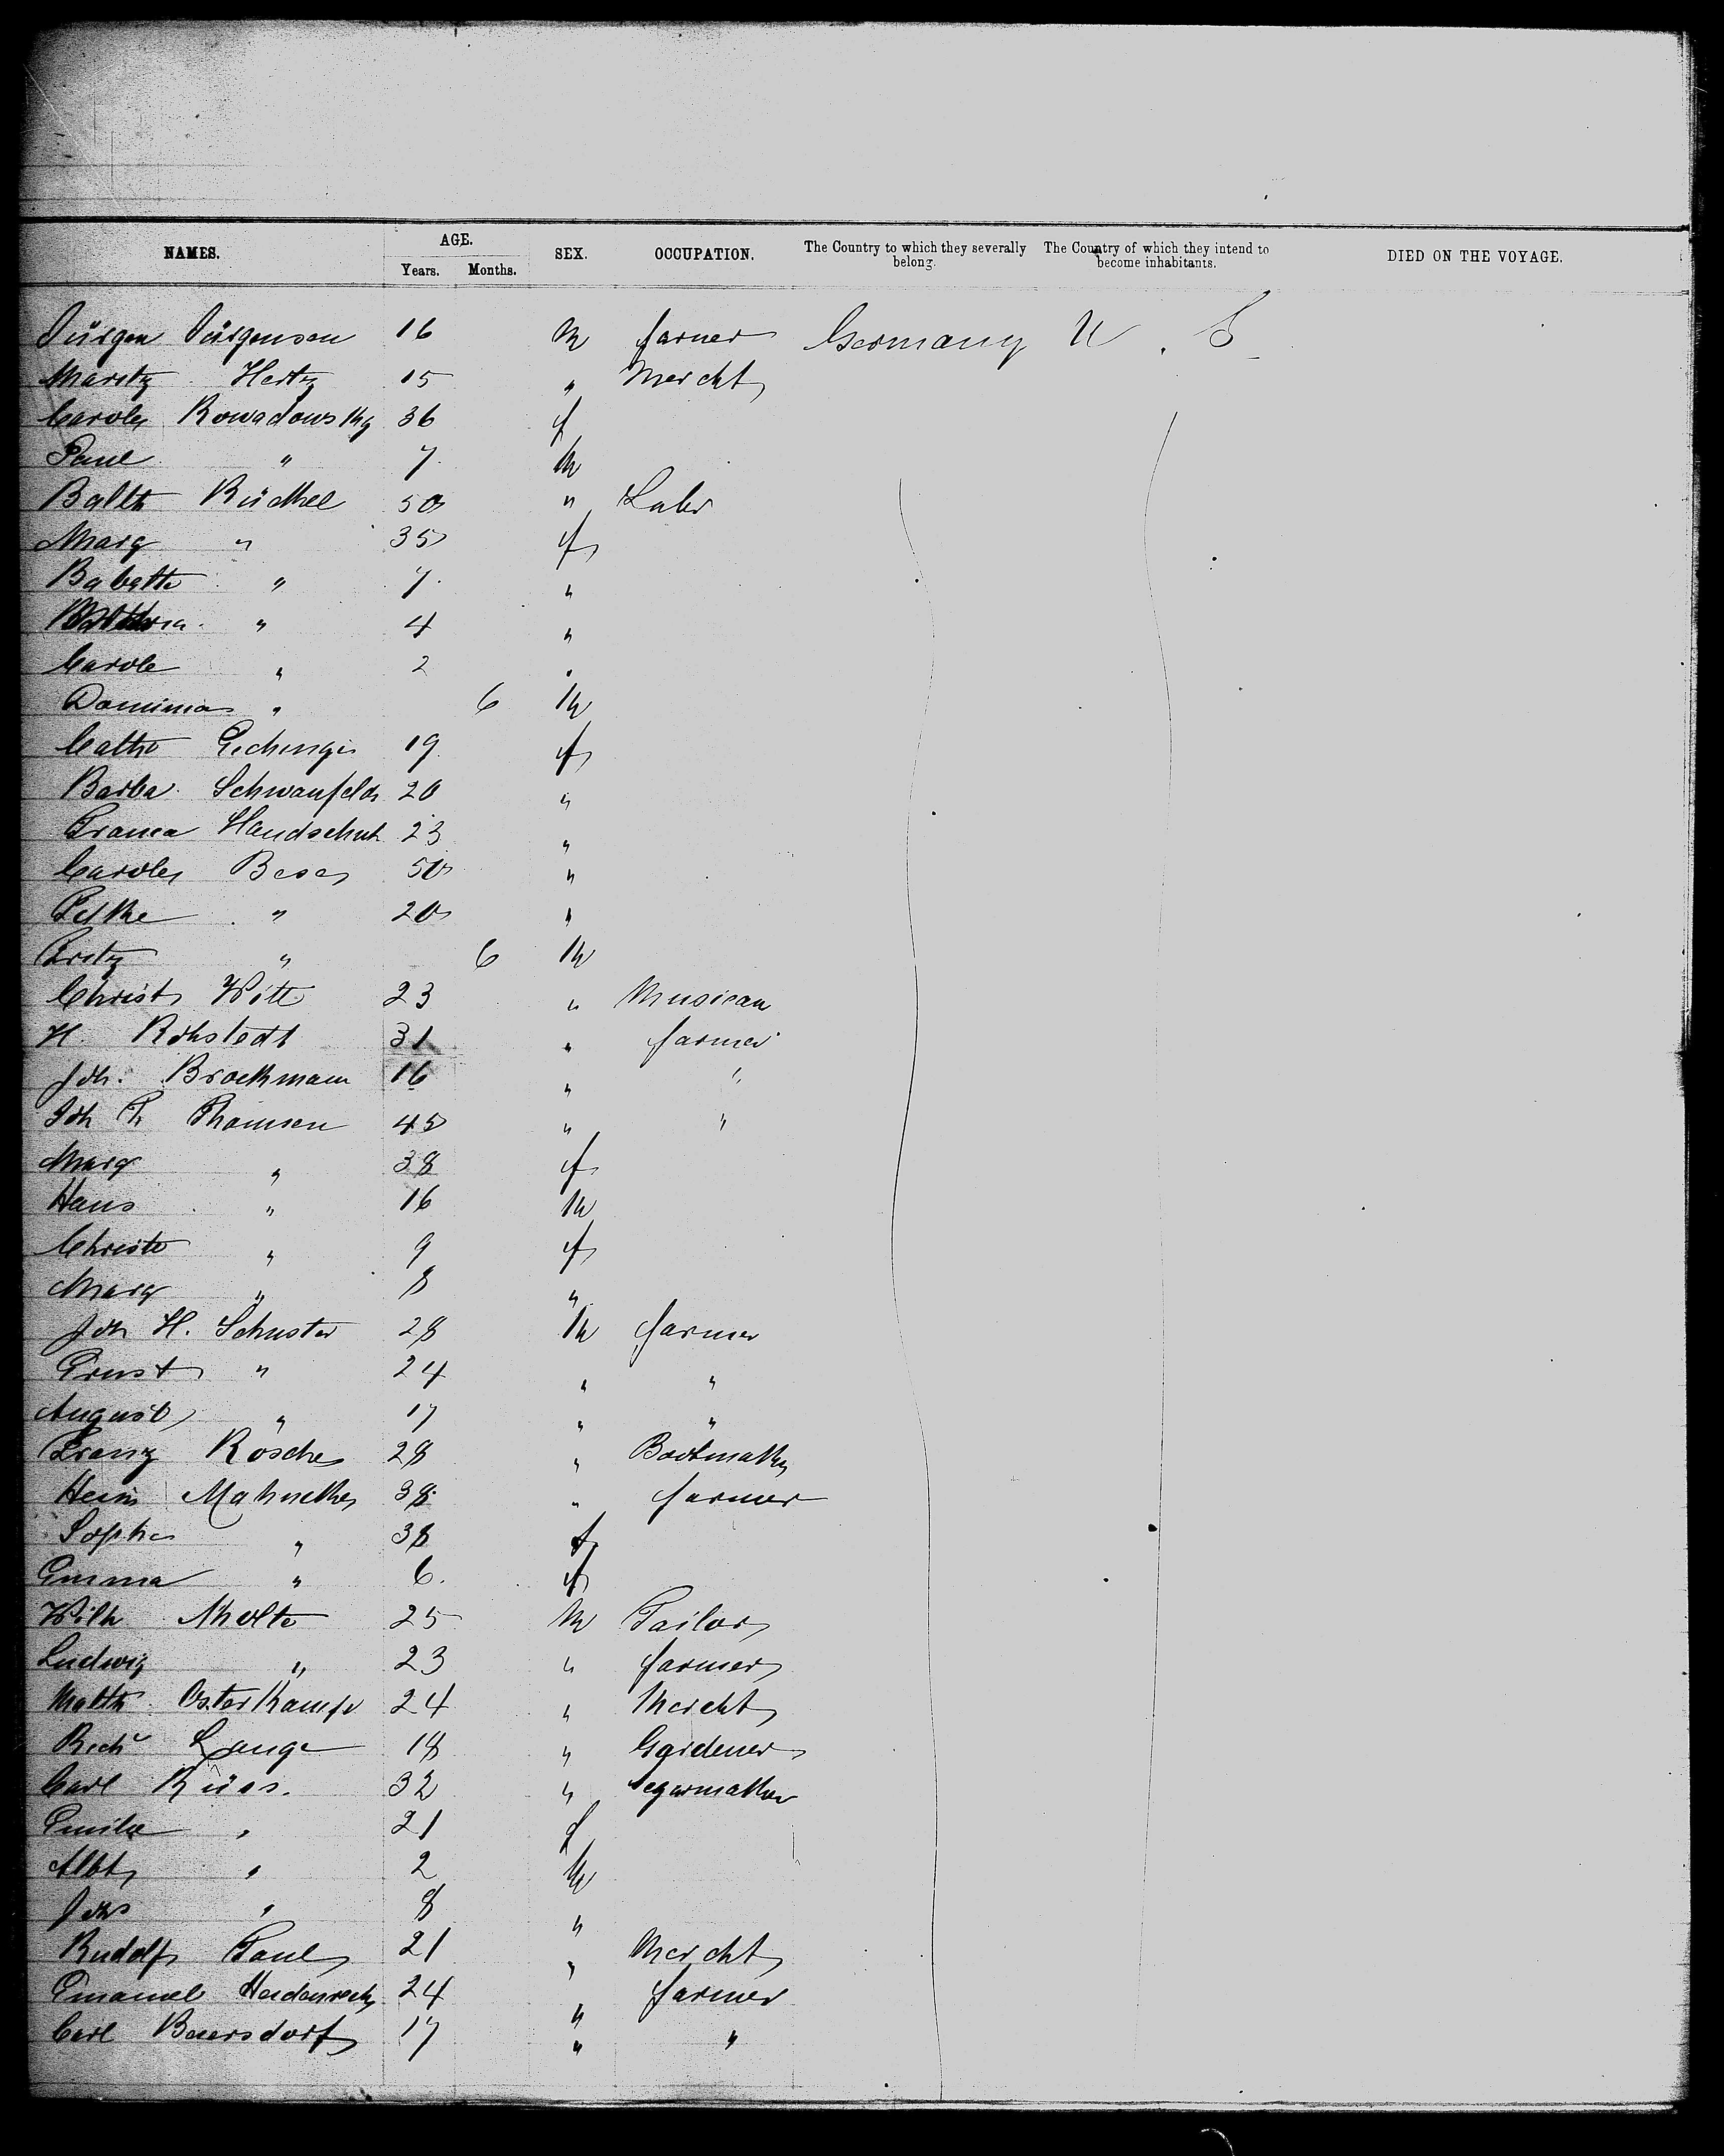 NAMES. AGE. SEX. OCCUPATION. The Country to which they severally belong. The Country of which they intend to become inhabitants. DIED ON THE VOYAGE.
Years. Months.
Jürgen Jürgensen 16 M farmer Germany U. S
Moritz Hertz 15 " Mercht
Carole Rowadowsky 36 f
Paul " 7 M
Balth Rückel 50 " Labr
Marg " 35 f
Babette " 7 "
" 4 "
Carole " 2 "
Dominica " 6 M
Cathe 19 f
Barba Schwanfeldr 20 "
Franca Handschuh 23 "
Carole Bese 50 "
" 20 "
Fritz " 6 M
Christ Witt 23 " Musican
H. Rohstedt 31 " farmer
Joh. Brockmann 16 " "
Joh Th Thomsen 45 " "
Marg " 38 f
Hans " 16 M
Christe " 9 f
Marg " 8 "
Joh H. Schuster 28 M farmer
Ernst " 24 " "
August " 17 " "
Franz Rösche 28 " Bootmaker
Heinr Mahncke 38 " farmer
Sophie " 38 f
Emma " 6 f
Wilh Nolte 25 M Tailor
Ludwig " 23 " farmer
Matth Osterkamp 24 " Mercht
Richd Lange 18 " Gardener
Carl Rüss. 32 " segarmaker
Emilie " 21 f
Albt " 2 M
Johs " 8 "
Rudolf Paul 21 " Mercht
Emanuel Heidenreich 24 " farmer
Carl Baiersdorf 17 " "